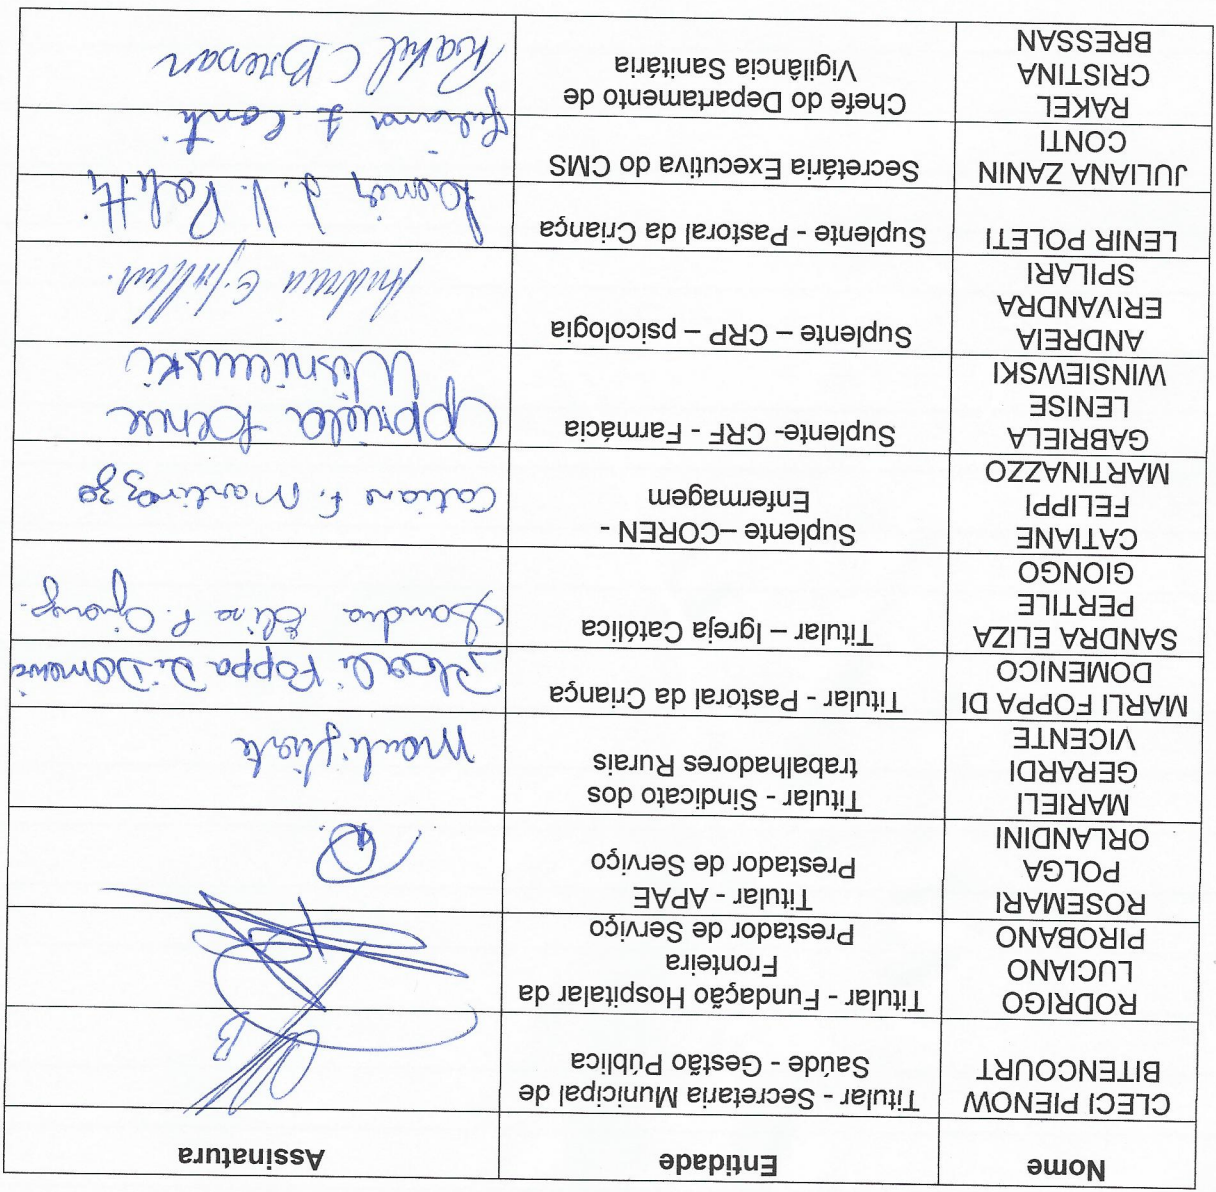 Nome Entidade Assinatura
CLECI PIENOW
BITENCOURT
Titular - Secretaria Municipal de
Saúde - Gestão Pública
RODRIGO
LUCIANO
PIROBANO
Titular - Fundação Hospitalar da
Fronteira
Prestador de Serviço
ROSEMARI
POLGA
ORLANDINI
Titular - APAE
Prestador de Serviço
MARIELI
GERARDI
VICENTE
Titular - Sindicato dos
trabalhadores Rurais
MARLI FOPPA DI
DOMENICO
Titular - Pastoral da Criança
Marli Foppa Di Domenico
SANDRA ELIZA
PERTILE
GIONGO
Titular – Igreja Católica
Sandra Eliza P. Giongo
CATIANE
FELIPPI
MARTINAZZO
Suplente –COREN -
Enfermagem
Catiane F. Martinazzo
GABRIELA
LENISE
WINSIEWSKI
Suplente- CRF - Farmácia
Gabriela Lenise
Wisniewski
ANDREIA
ERIVANDRA
SPILARI
Suplente – CRP – psicologia
Andreia E. Spillari.
LENIR POLETI
Suplente - Pastoral da Criança
Lenir L. V. Poletti
JULIANA ZANIN
CONTI
Secretária Executiva do CMS
Juliana Z. Conti
RAKEL
CRISTINA
BRESSAN
Chefe do Departamento de
Vigilância Sanitária
Rakel C Bressan